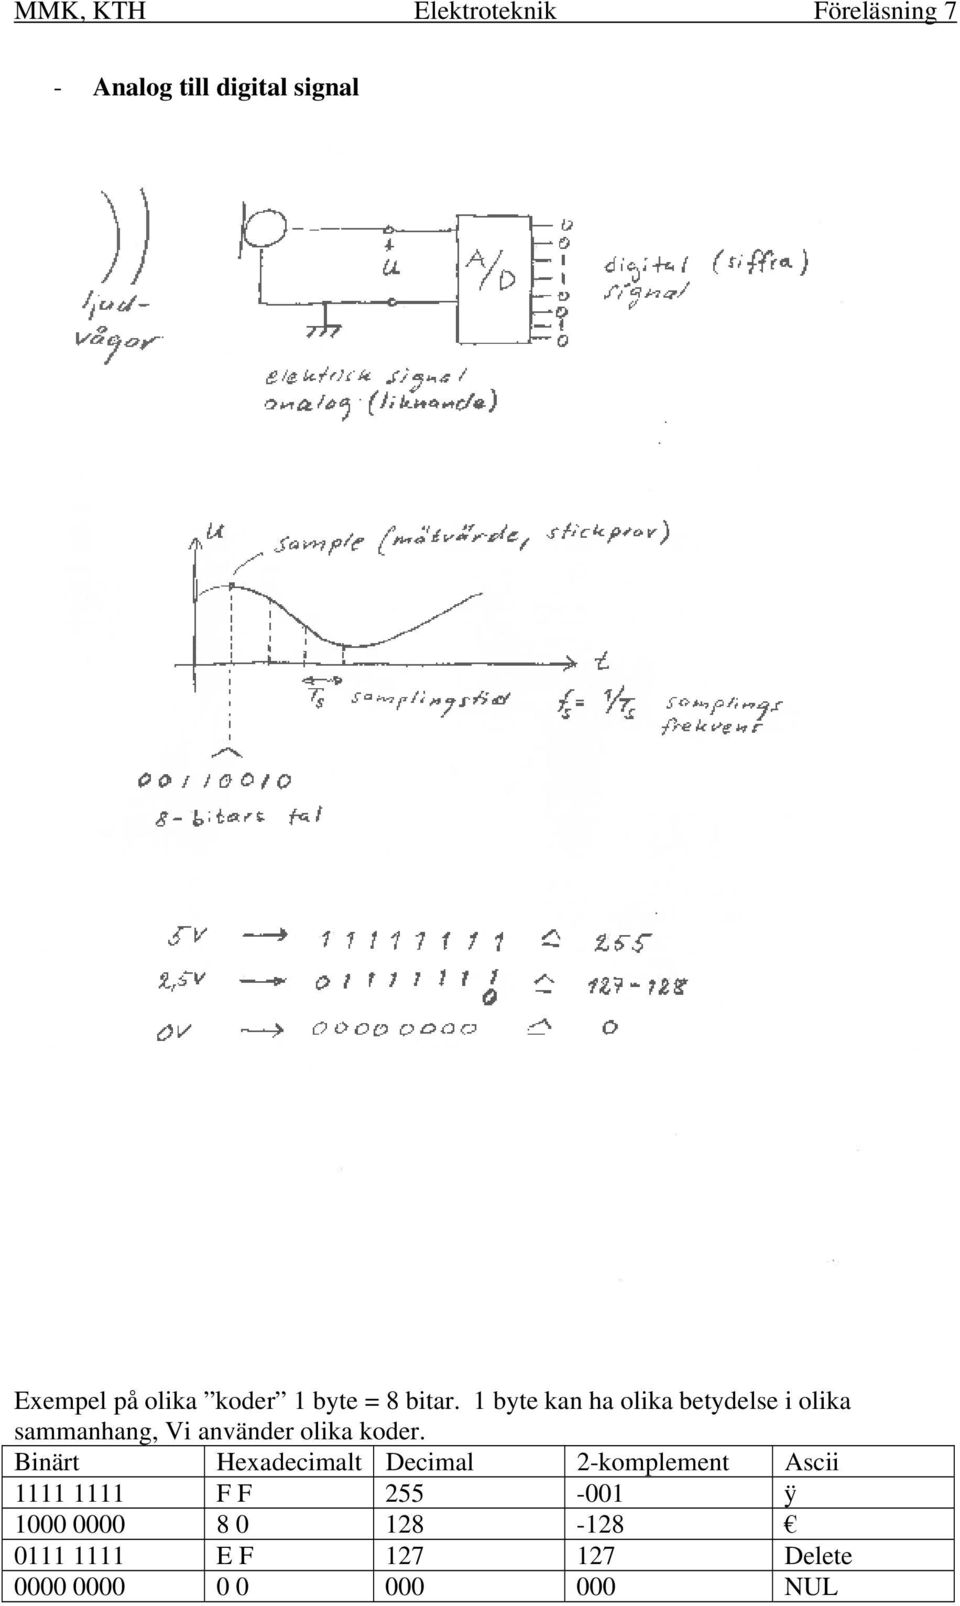 MMK, KTH Elektroteknik Föreläsning 7
- Analog till digital signal
ljud-
vågor
+
u
A/D
0
0
1
1
0
0
1
0
digital (siffra)
signal
elektrisk signal
analog (liknande)
u
sample (mätvärde, stickprov)
t
Ts samplingstid fs = 1/Ts samplings
frekvens
00110010
8-bitars tal
5V → 11111111 ≙ 255
2,5V → 01111111 ≙ 127-128
0
0V → 00000000 ≙ 0
Exempel på olika ”koder” 1 byte = 8 bitar. 1 byte kan ha olika betydelse i olika
sammanhang, Vi använder olika koder.
Binärt Hexadecimalt Decimal 2-komplement Ascii
1111 1111 F F 255 -001 ÿ
1000 0000 8 0 128 -128 €
0111 1111 E F 127 127 Delete
0000 0000 0 0 000 000 NUL